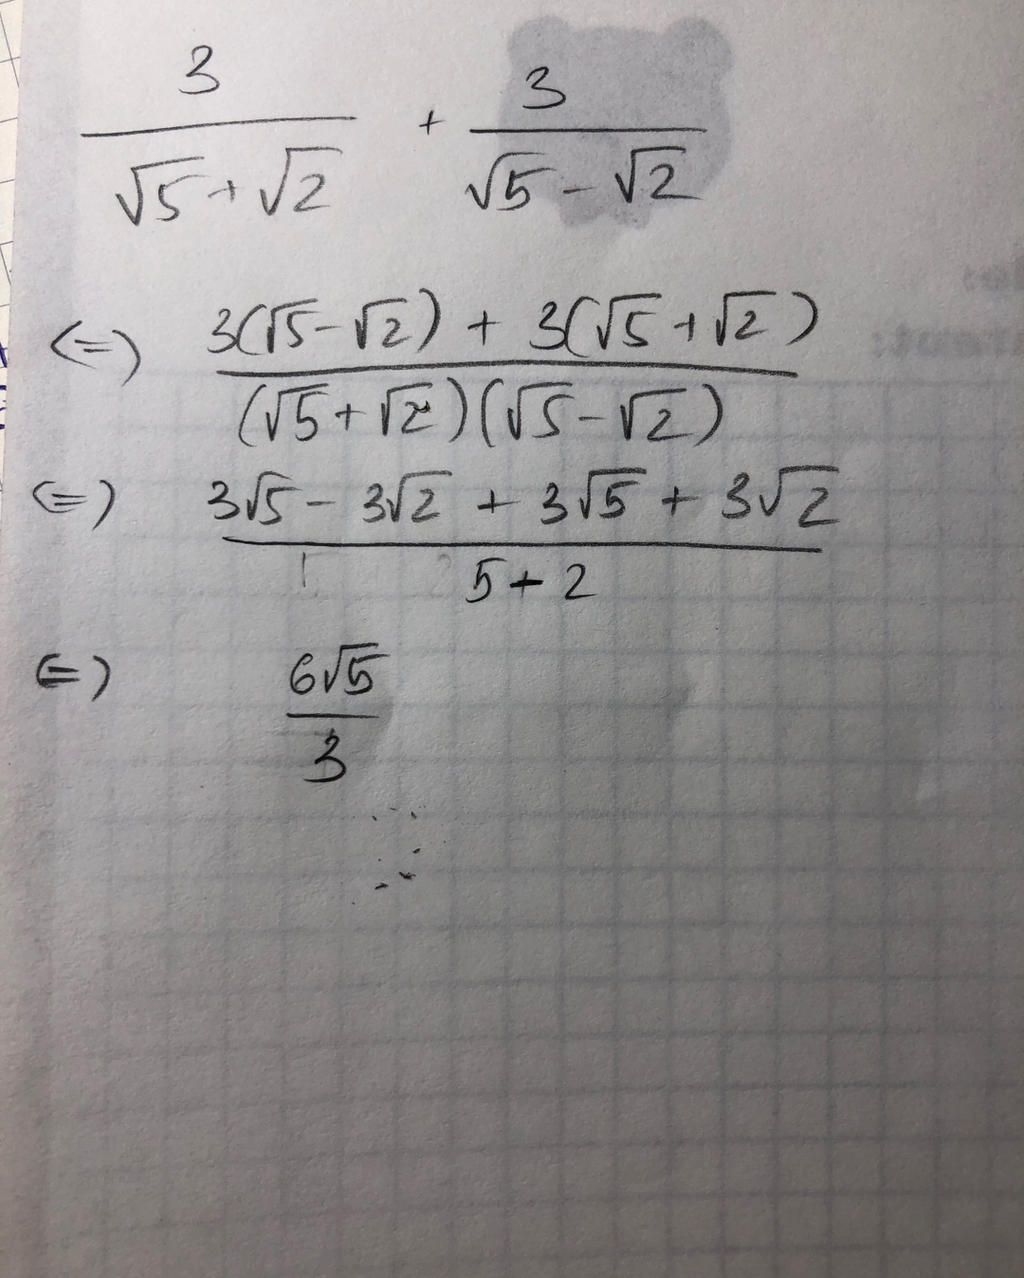 3/(√5+√2) + 3/(√5-√2)
(=) (3(√5-√2) + 3(√5+√2))/((√5+√2)(√5-√2))
(=) (3√5 - 3√2 + 3√5 + 3√2)/(5+2)
(=) 6√5/3